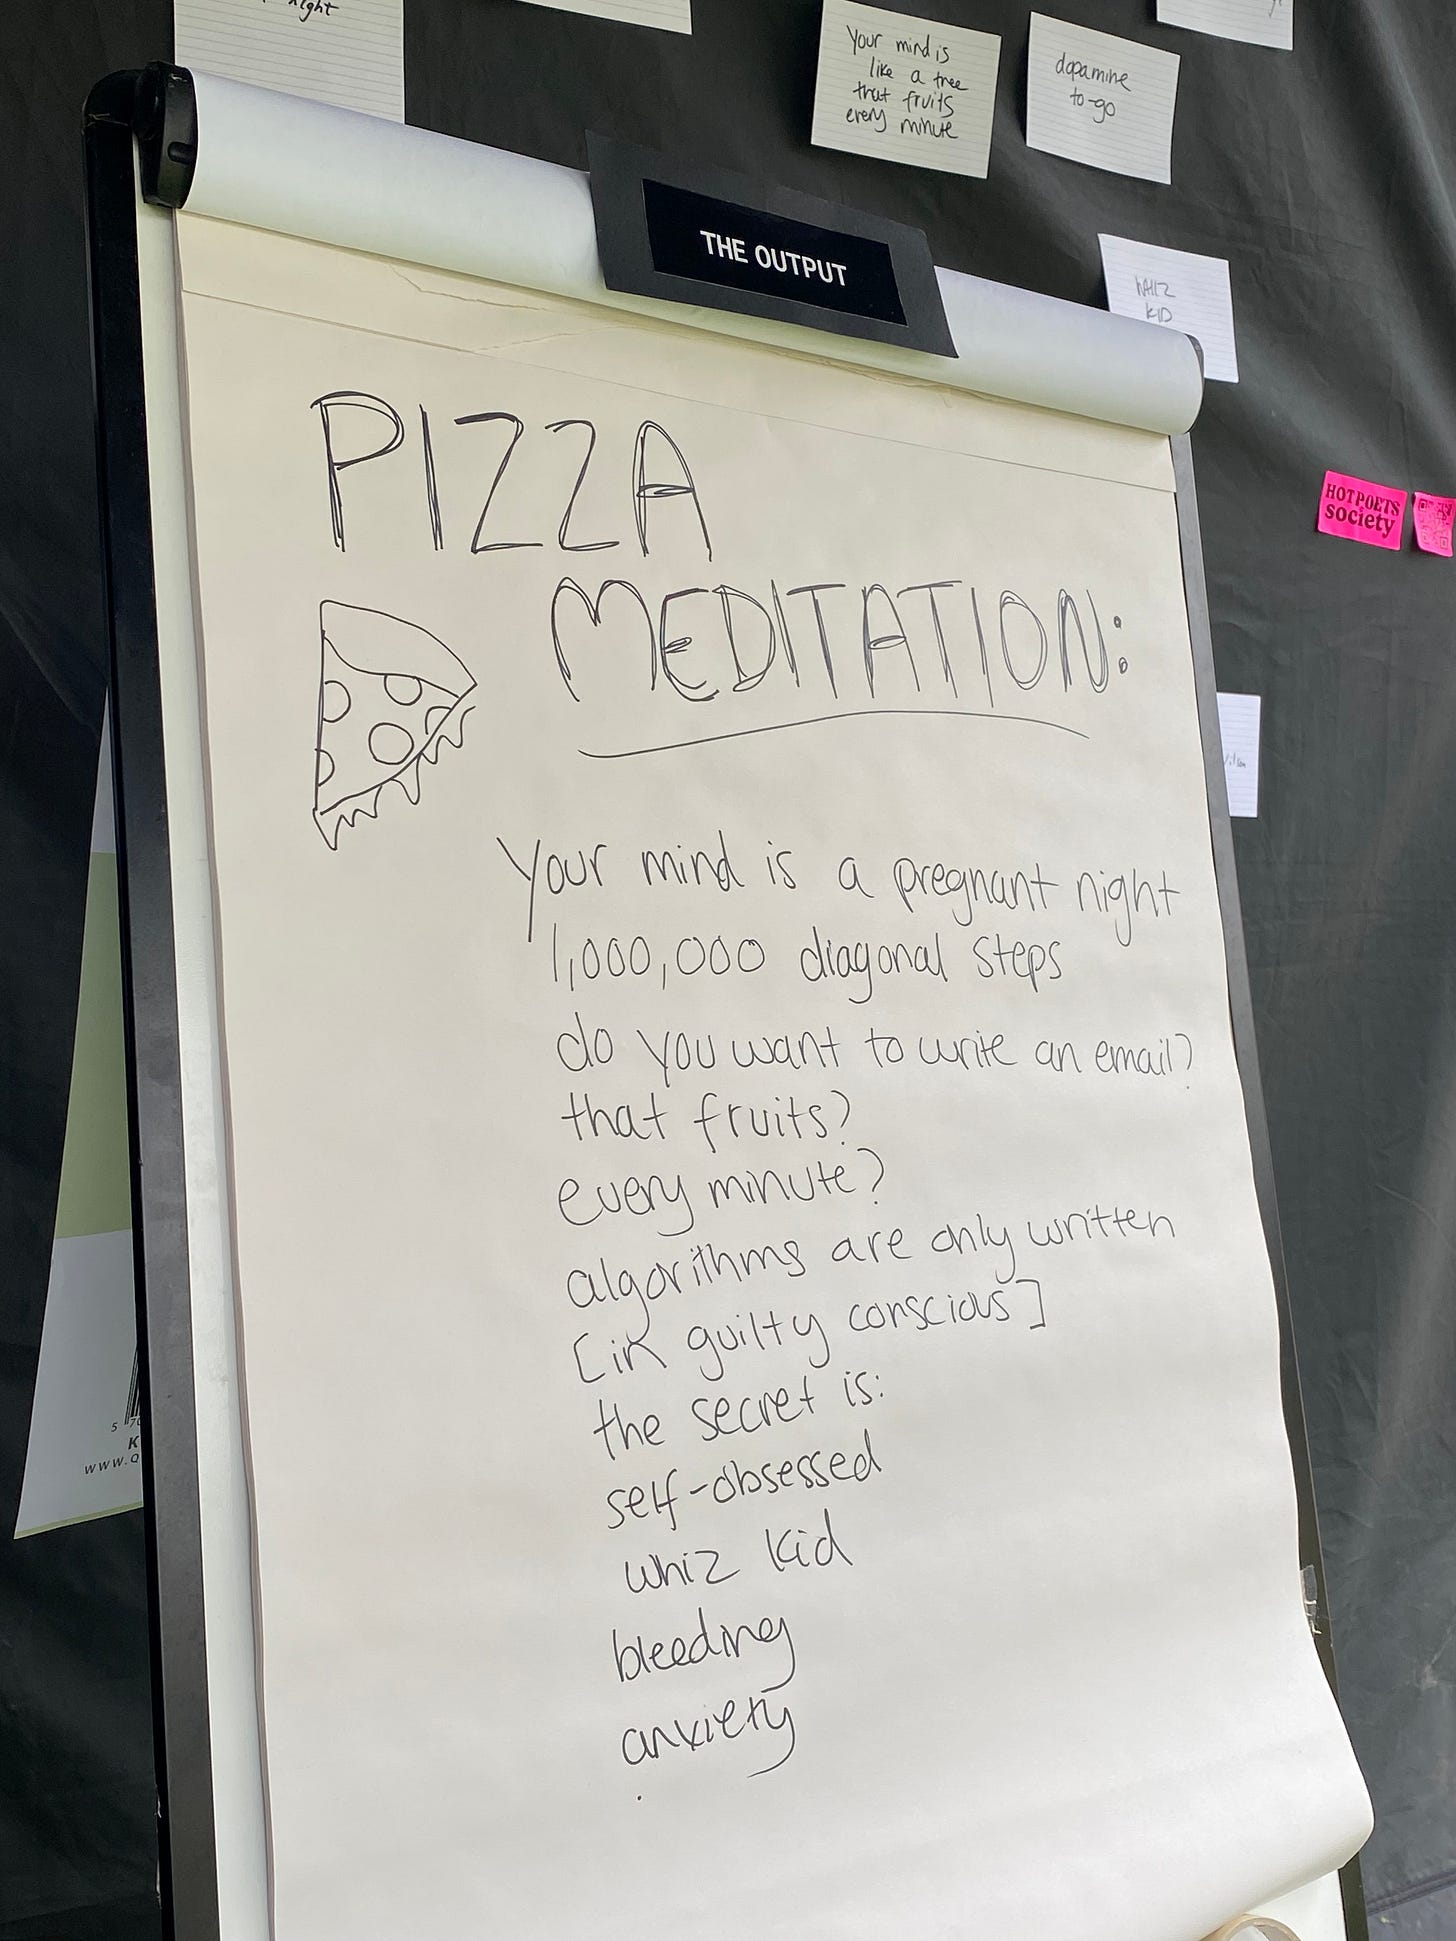 night
Your mind is
like a tree
that fruits
every minute
dopamine
to-go
THE OUTPUT
WHIZ
KID
HOT POETS
society
PIZZA
MEDITATION:
Your mind is a pregnant night
1,000,000 diagonal steps
do you want to write an email?
that fruits?
every minute?
algorithms are only written
[in guilty conscious]
the secret is:
self-obsessed
whiz kid
bleeding
anxiety
.
5 70
K
WWW.Q